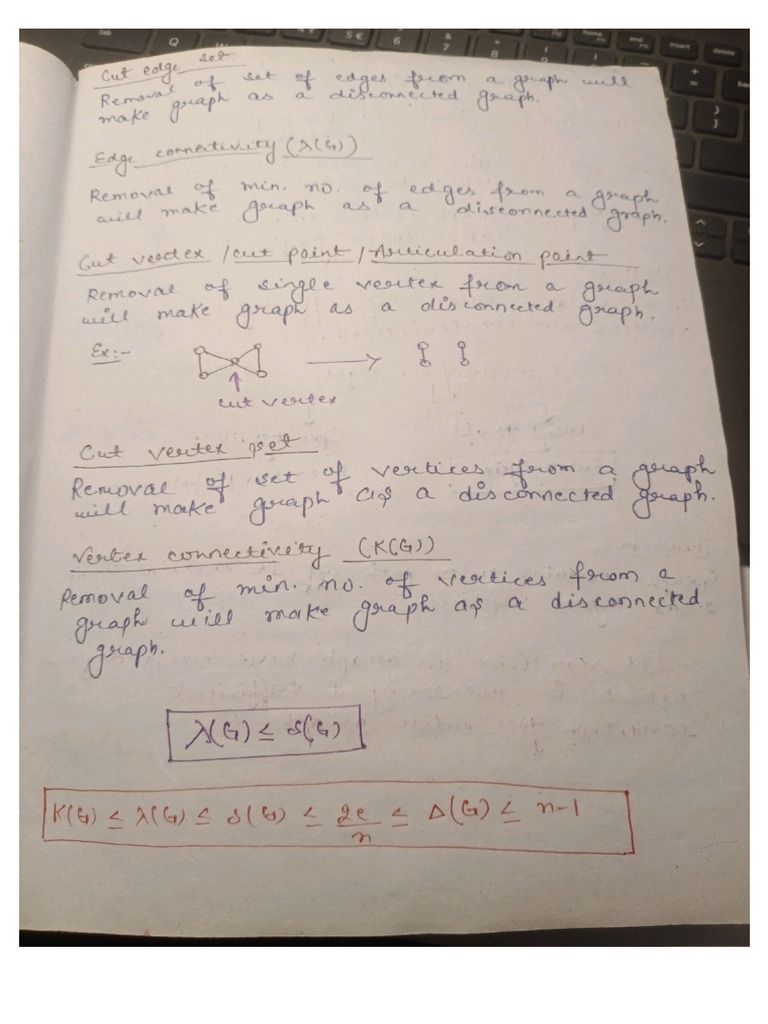 Cut edge set
Removal of set of edges from a graph will
make graph as a disconnected graph.
Edge connectivity (λ(G))
Removal of min. no. of edges from a graph
will make graph as a disconnected graph.
Cut vertex / cut point / Articulation point
Removal of single vertex from a graph
will make graph as a disconnected graph.
Ex:-
cut vertex
Cut vertex set
Removal of set of vertices from a graph
will make graph as a disconnected graph.
Vertex connectivity (K(G))
Removal of min. no. of vertices from a
graph will make graph as a disconnected
graph.
λ(G) ≤ δ(G)
K(G) ≤ λ(G) ≤ δ(G) ≤ 2e/n ≤ Δ(G) ≤ n-1